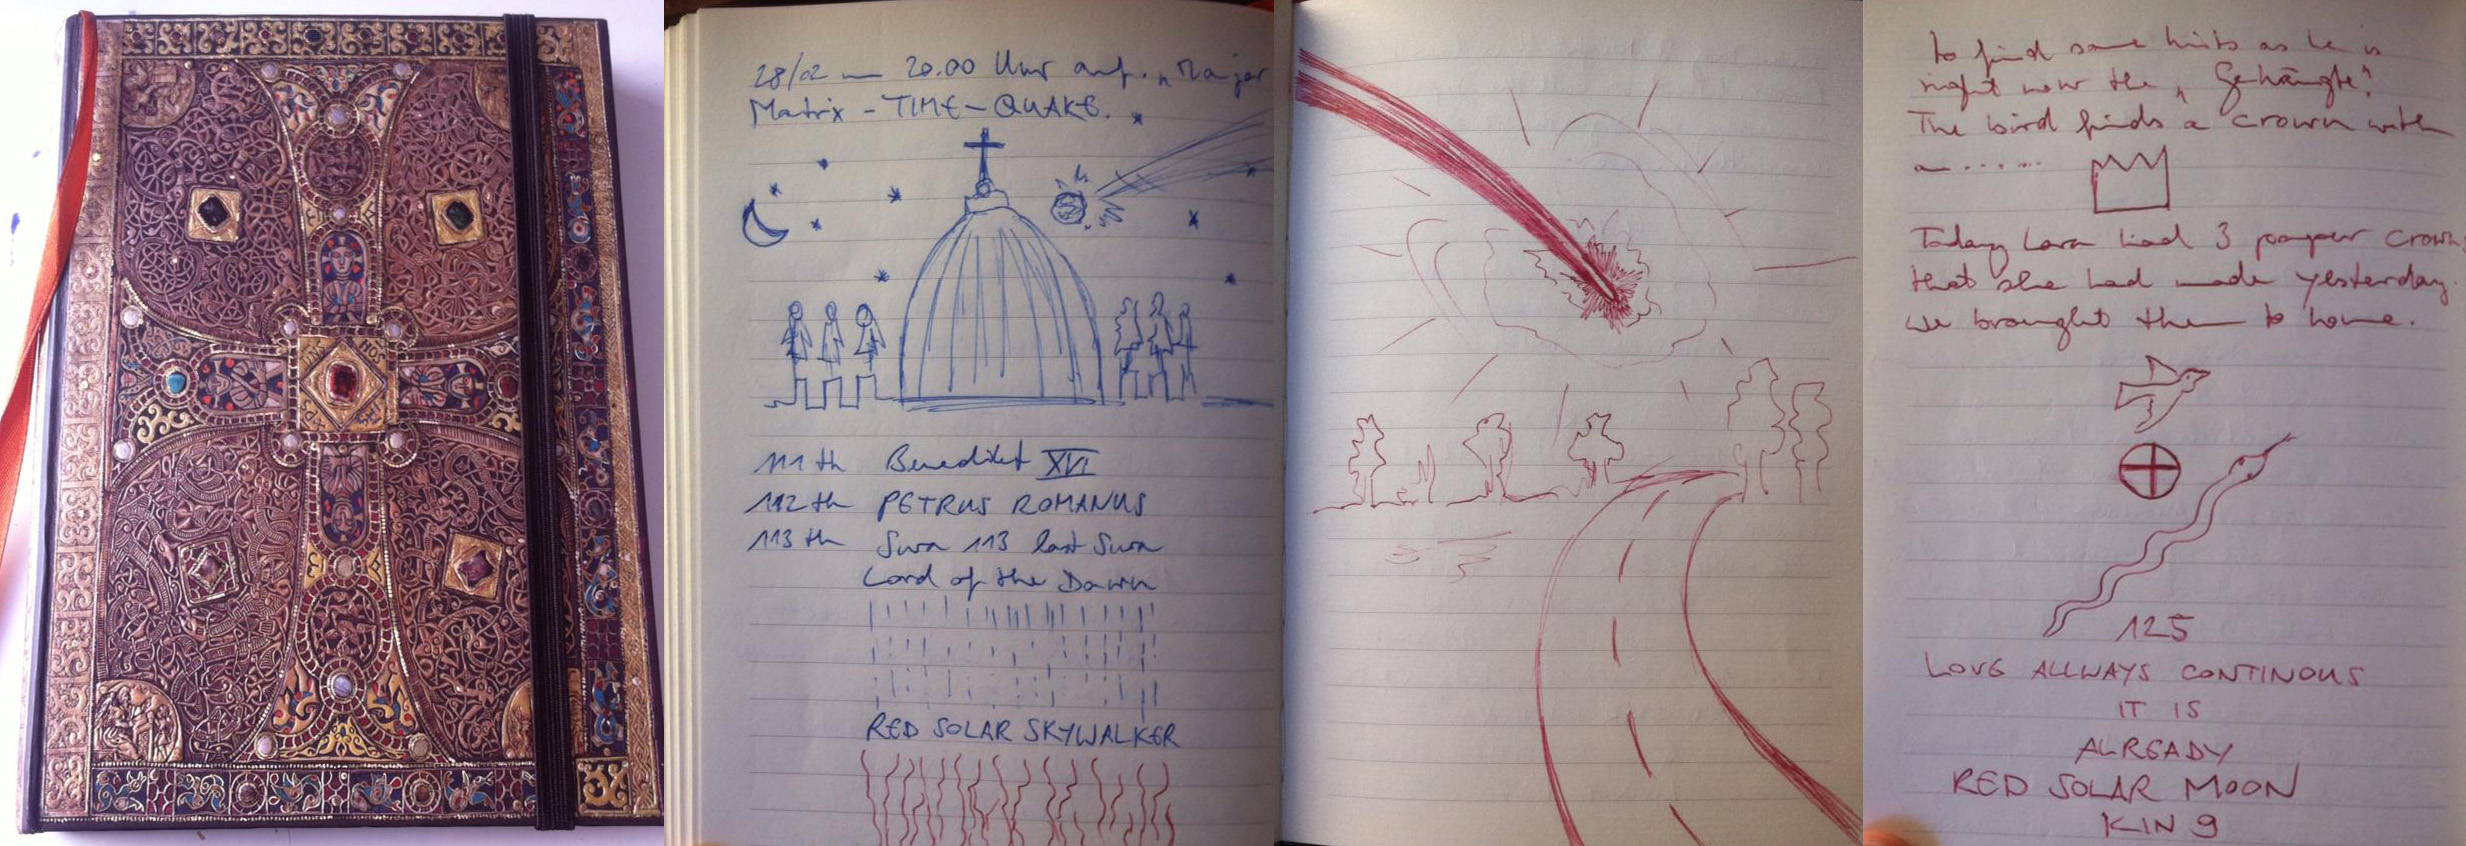 28/02 — 20.00 Uhr auf. „Major
Matrix - TIME - QUAKE.
111th Benedikt XVI
112th PETRUS ROMANUS
113th Sura 113 last Sura
Lord of the Dawn
RED SOLAR SKYWALKER
to find some hints as he is
right now the „Gehängte".
The bird finds a crown with
a......
Today Lara had 3 papper crowns
that she had made yesterday.
We brought them to home.
125
LOVE ALLWAYS CONTINOUS
IT IS
ALREADY
RED SOLAR MOON
KIN 9